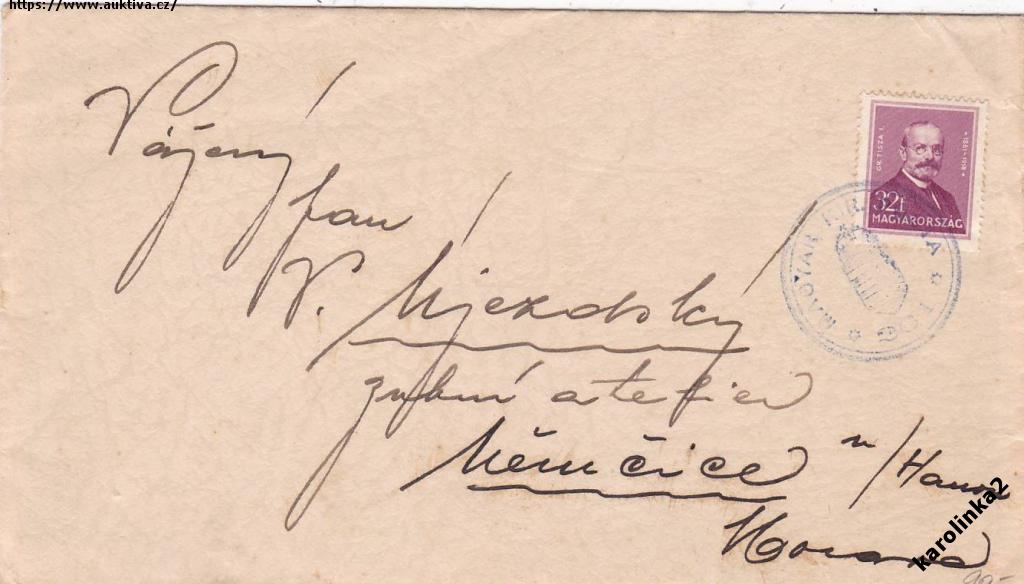 https://www.auktiva.cz/
Vážený
pan
V. Újezdský
zubní atelier
Němčice n/Hanou
Morava
GR. TISZA I. 1861-1918
32f
MAGYARORSZÁG
MAGYAR KIR. POSTA
karolinka2
90-